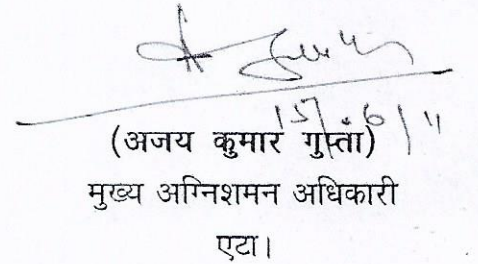 15/6/11
(अजय कुमार गुप्ता)
मुख्य अग्निशमन अधिकारी
एटा।